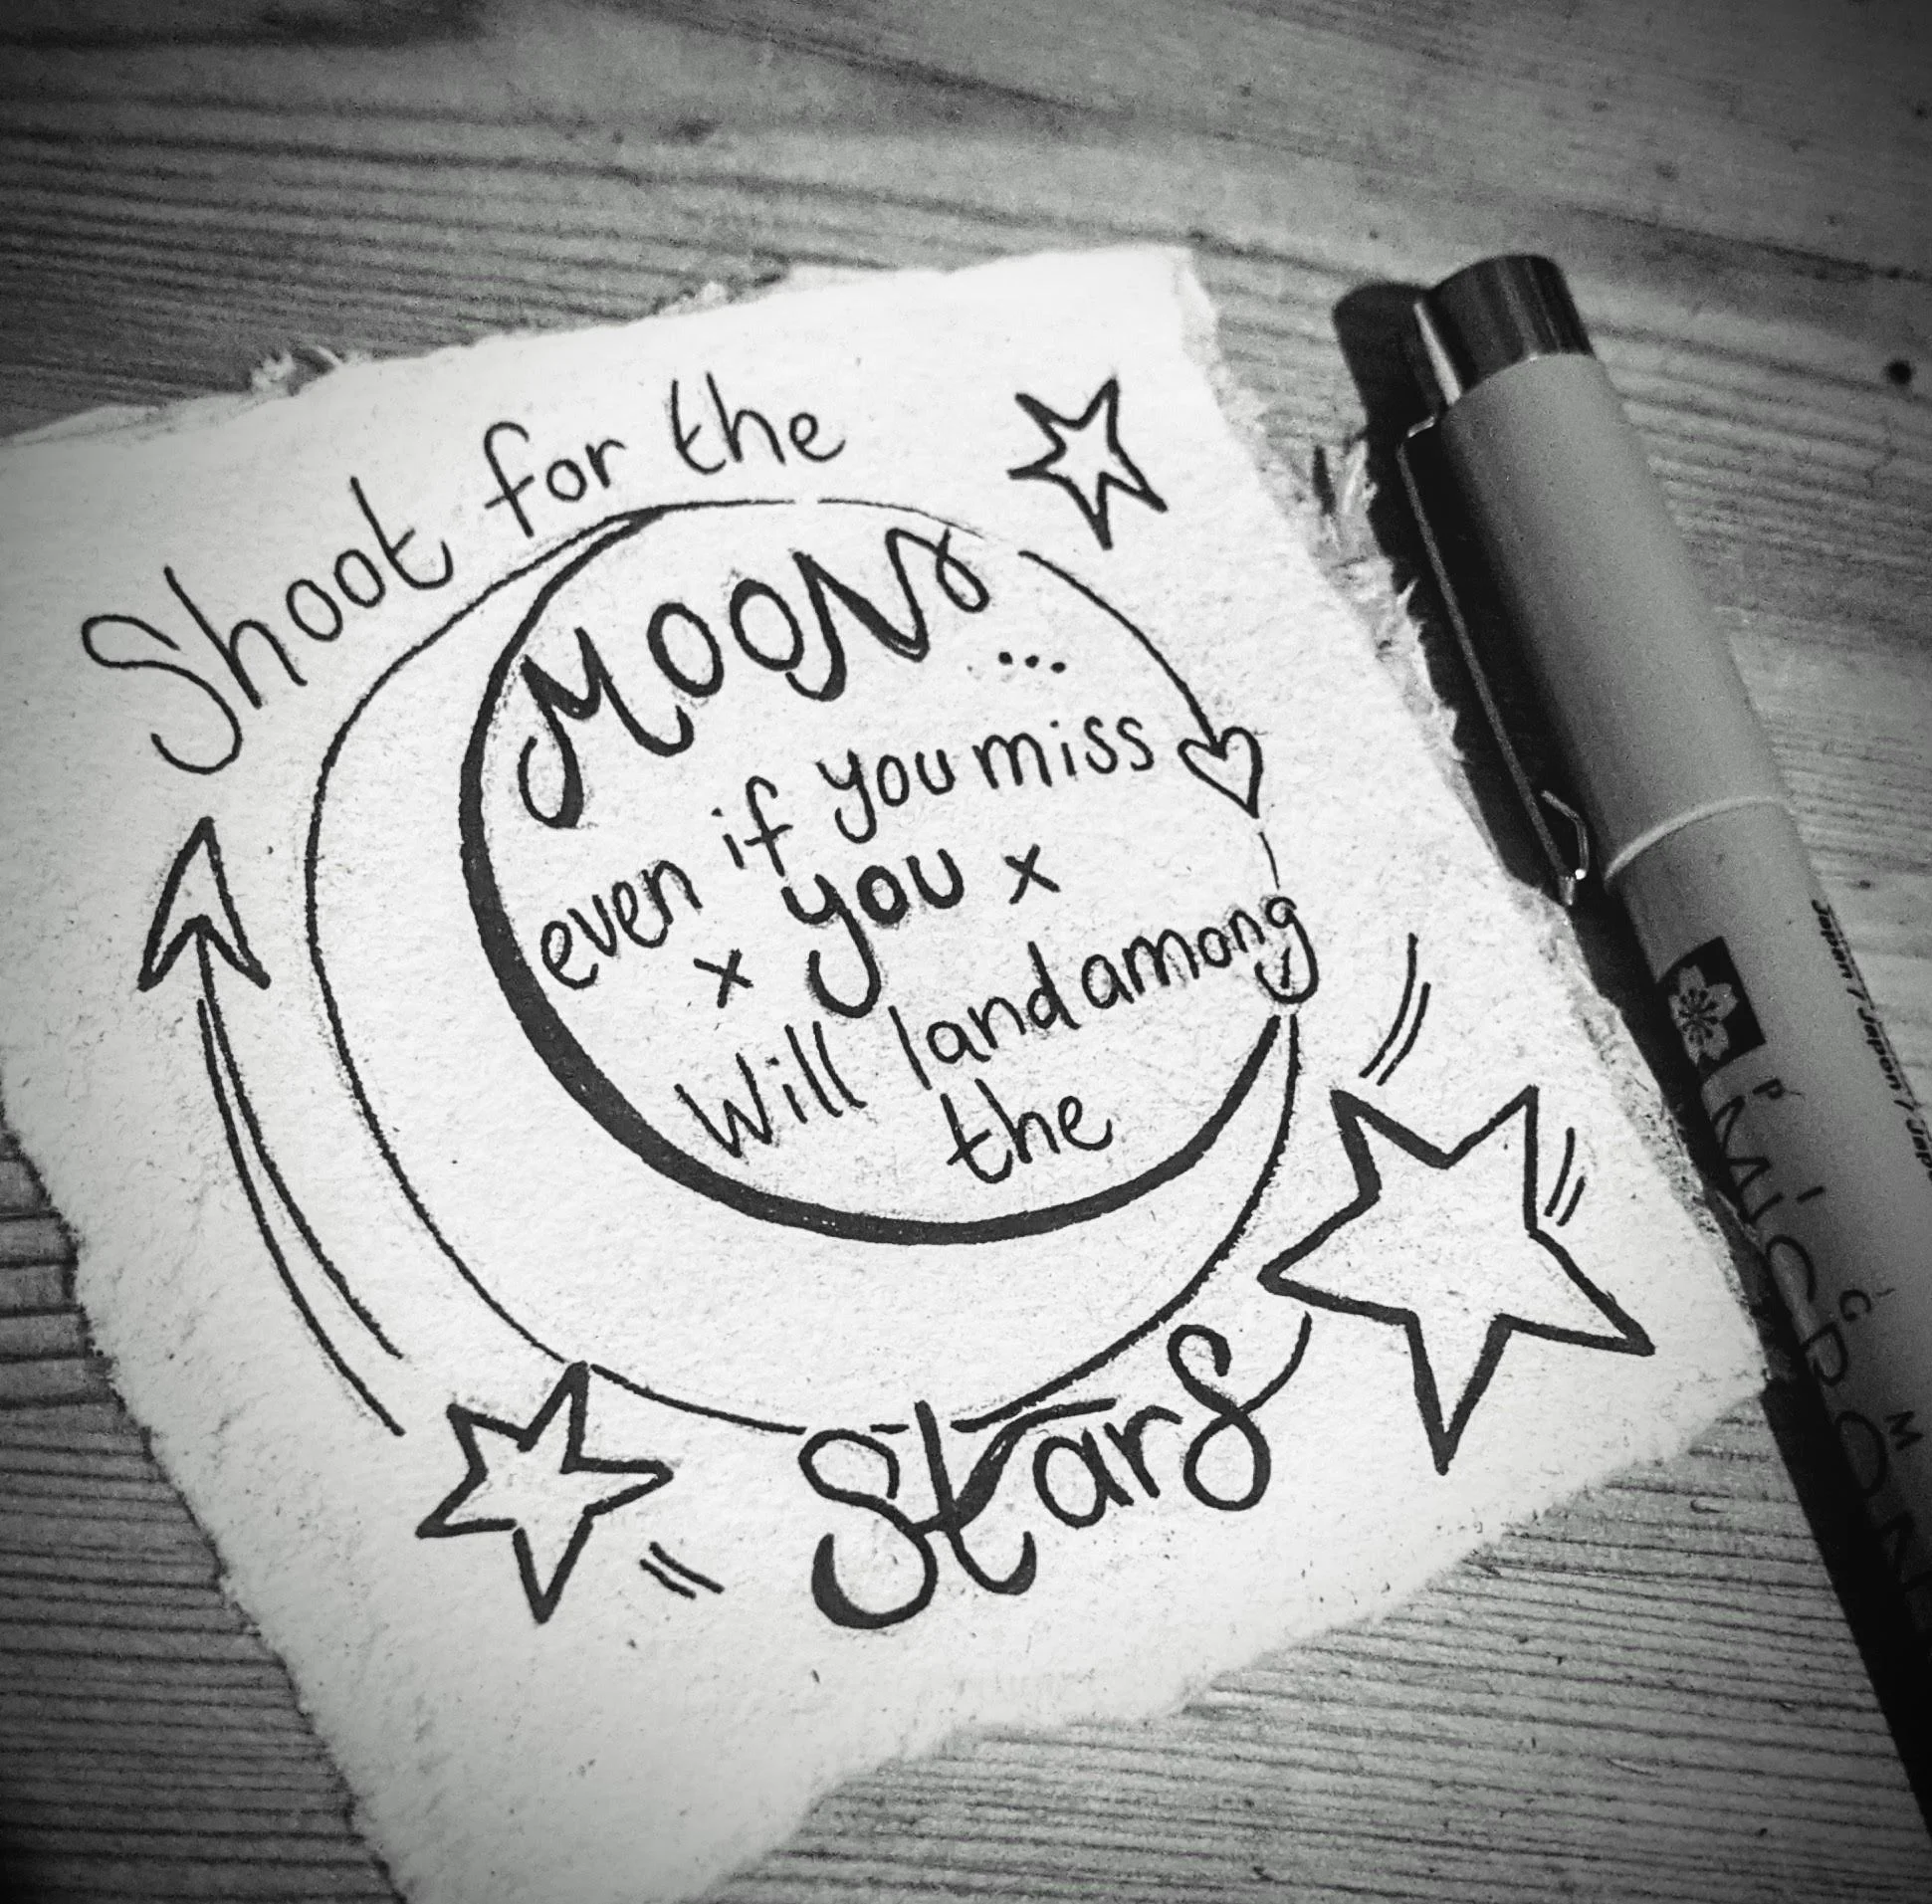 Shoot for the
MOON
...
even if you miss
x you x
Will land among
the
Stars
Japan / Japan / Jap
PIGMA
MICRON